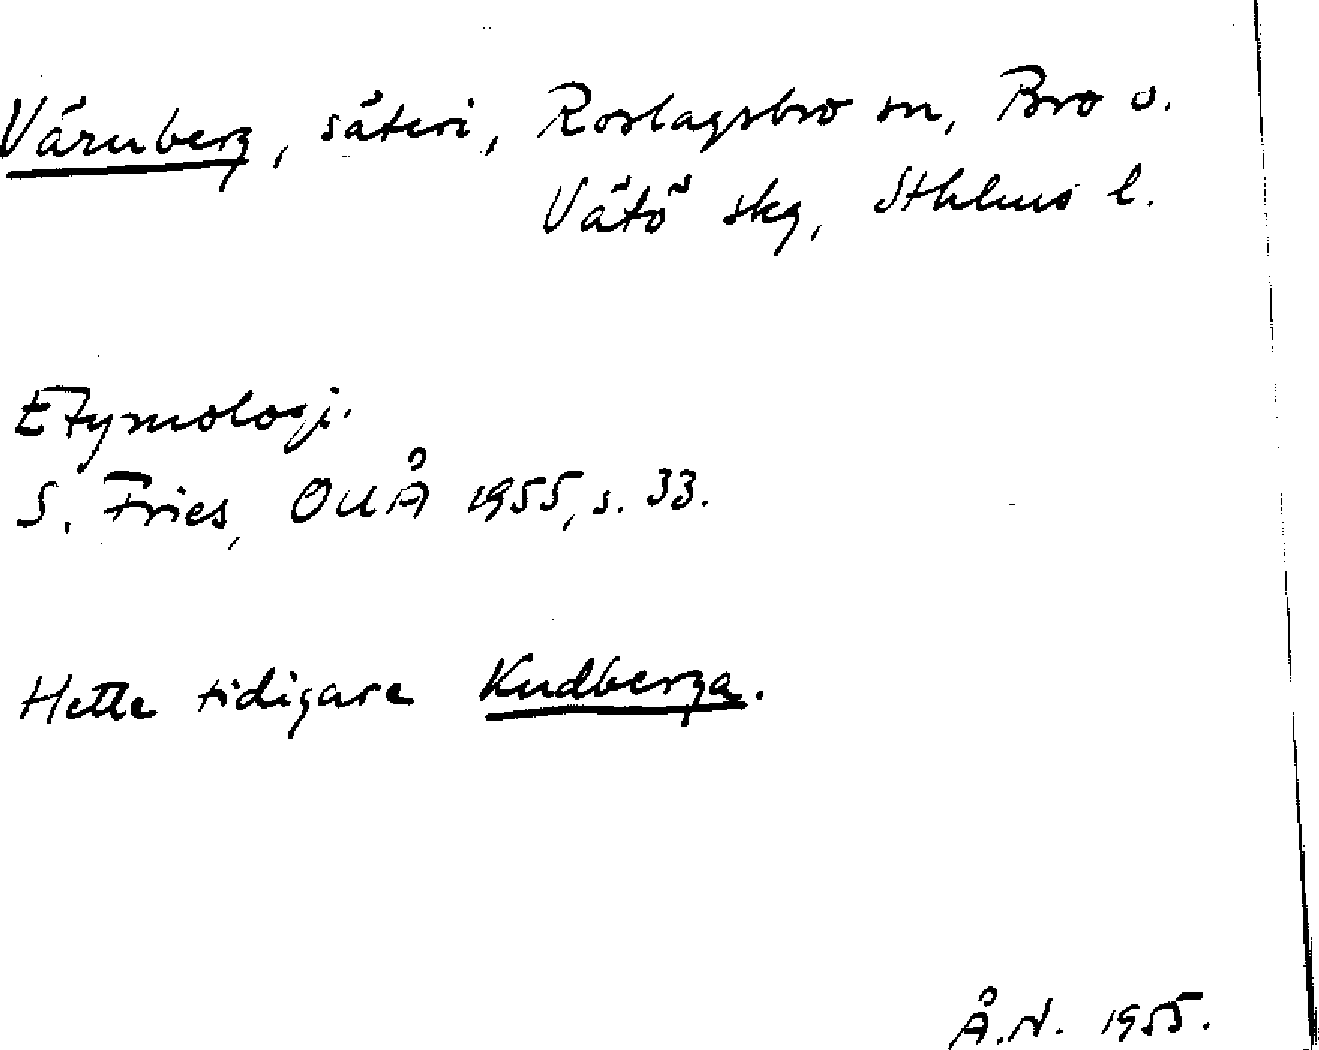 Värnberg, säteri, Roslagsbro sn, Bro o.
Vätö skg, Sthlms l.
Etymologi.
S. Fries, OUÅ 1955, s. 33.
Hette tidigare Kudberga.
Å.N. 1955.